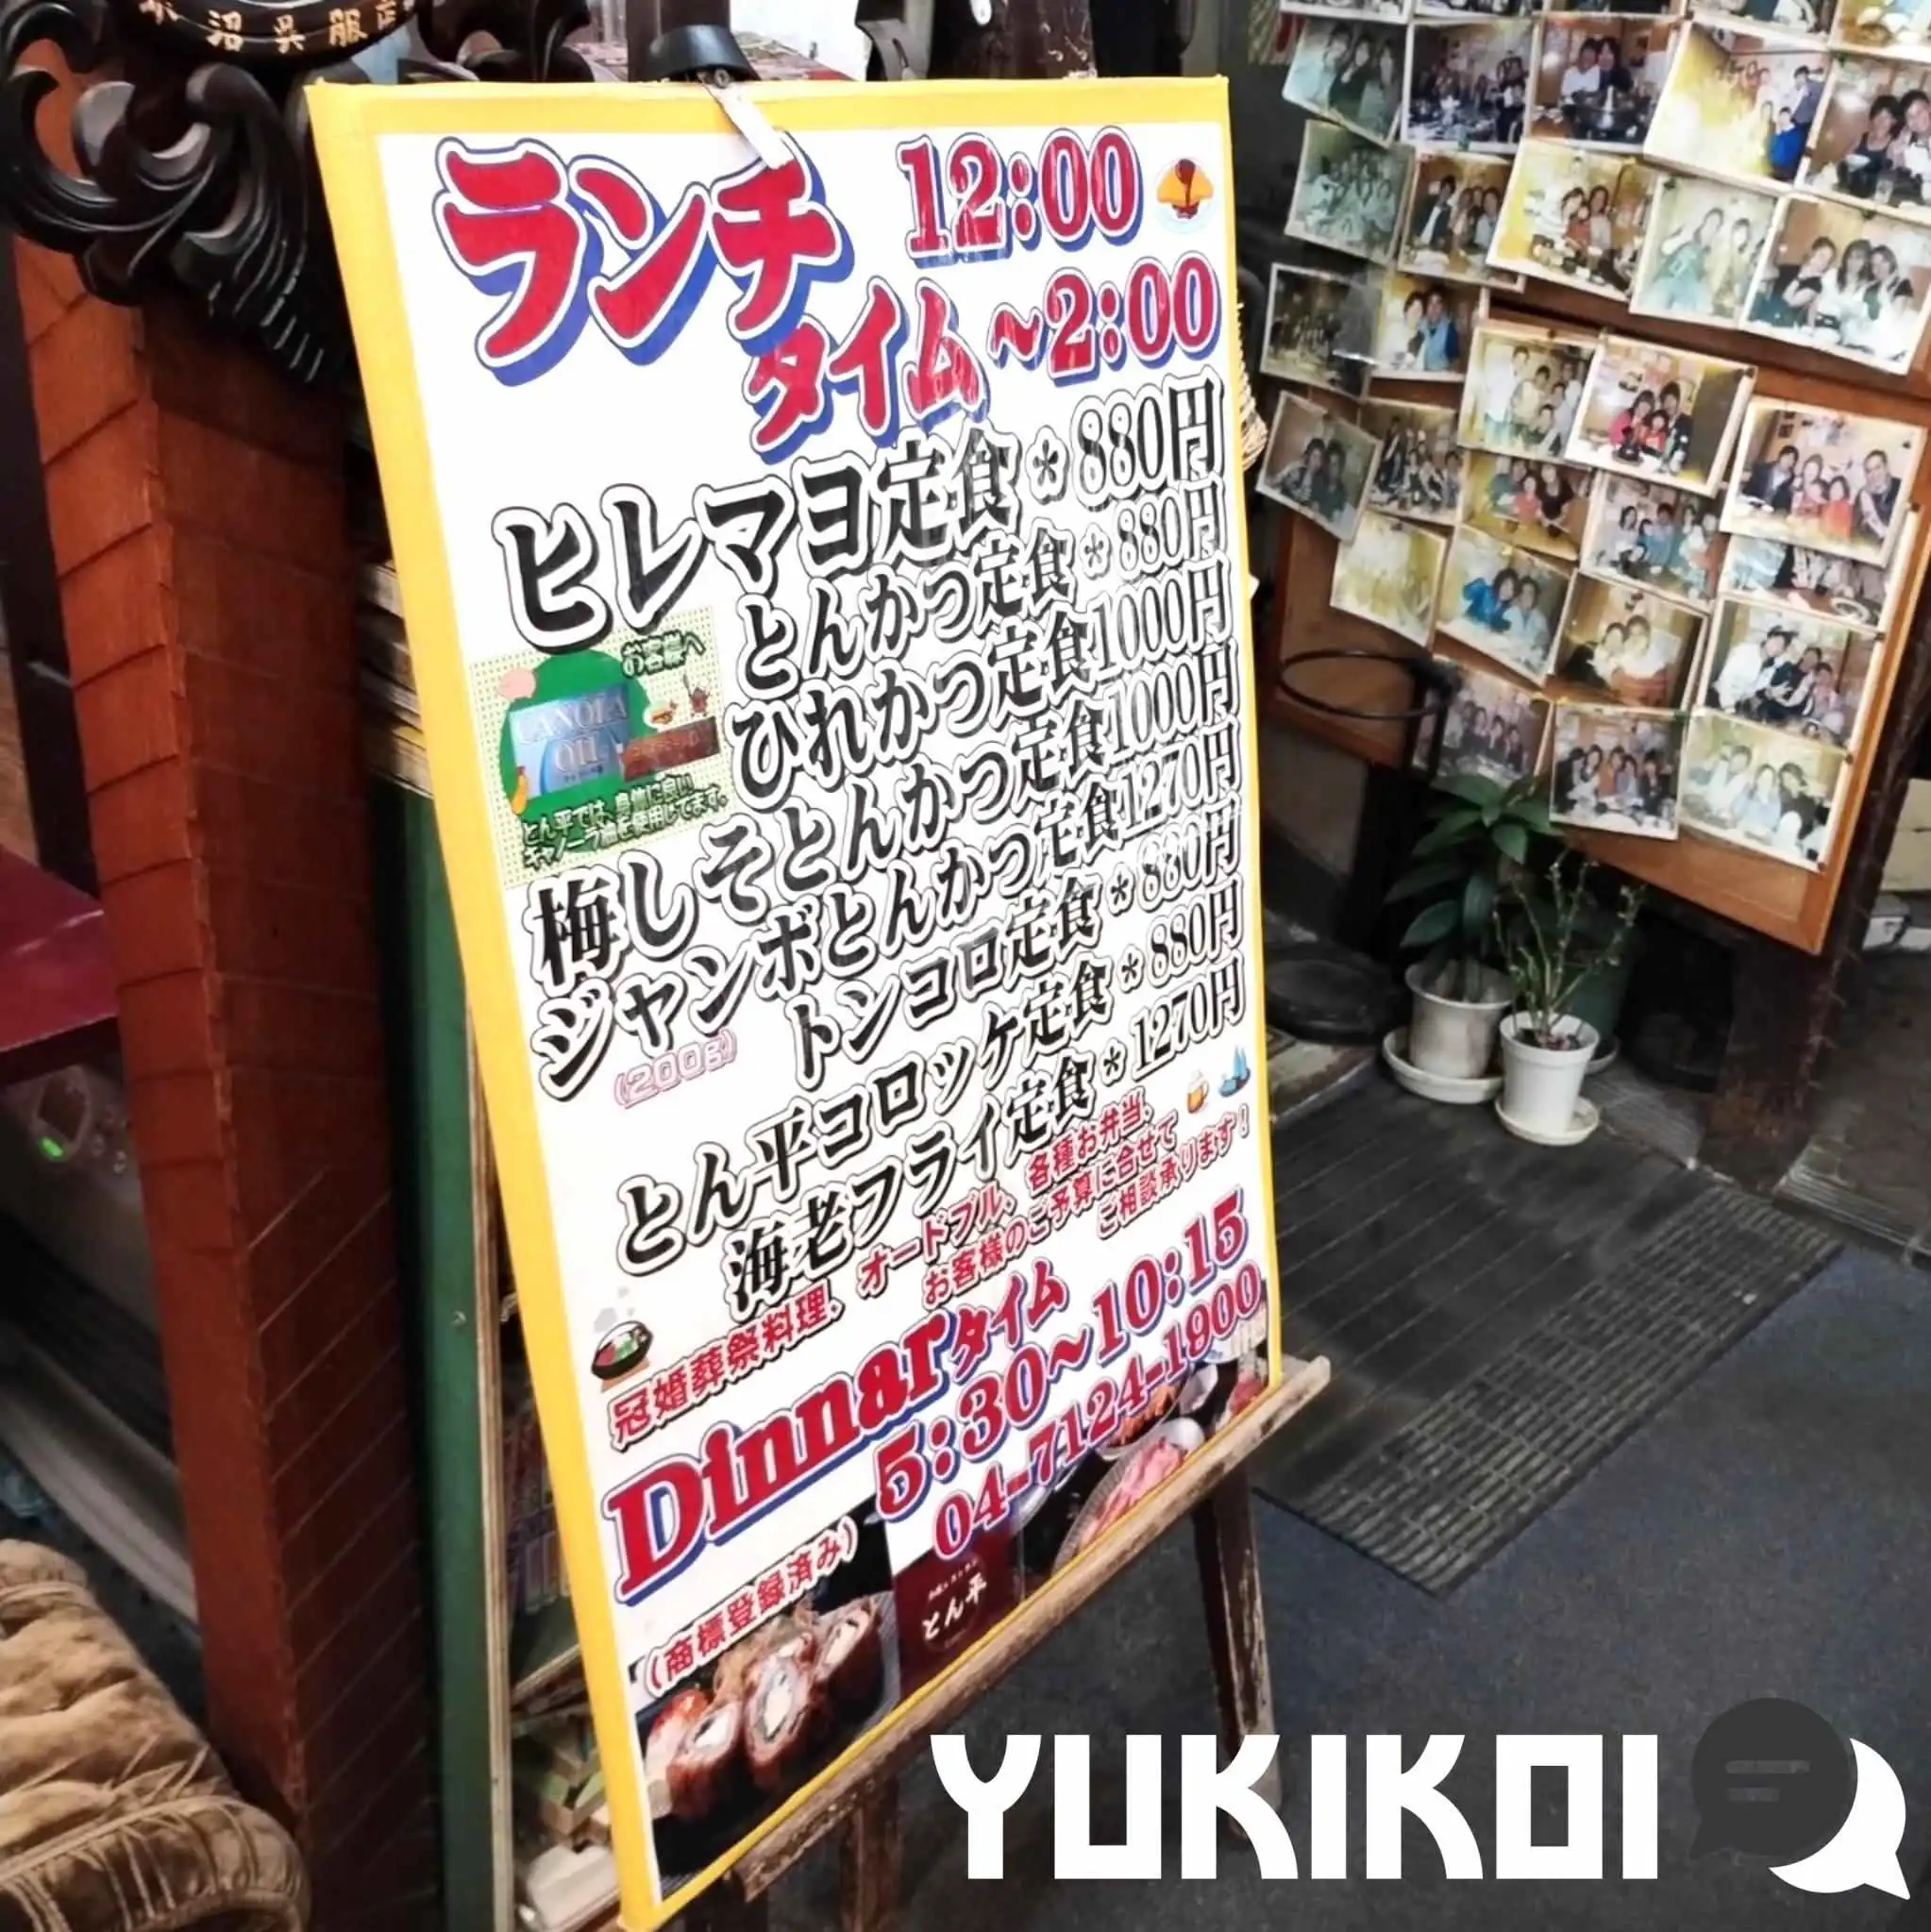 沼呉服店
ランチ 12:00
タイム ~2:00
ヒレマヨ定食*880円
とんかつ定食*880円
ひれかつ定食1000円
梅しそとんかつ定食1000円
ジャンボとんかつ定食1270円
(200g)
トンコロ定食*880円
とん平コロッケ定食*880円
海老フライ定食*1270円
お客様へ
CANOLA
OIL
とん平では、身体に良い
キャノーラ油を使用してます。
冠婚葬祭料理、オードブル、各種お弁当、
お客様のご予算に合せて
ご相談承ります!
Dinnarタイム
5:30~10:15
04-7124-1900
(商標登録済み)
とん平
YUKIKOI